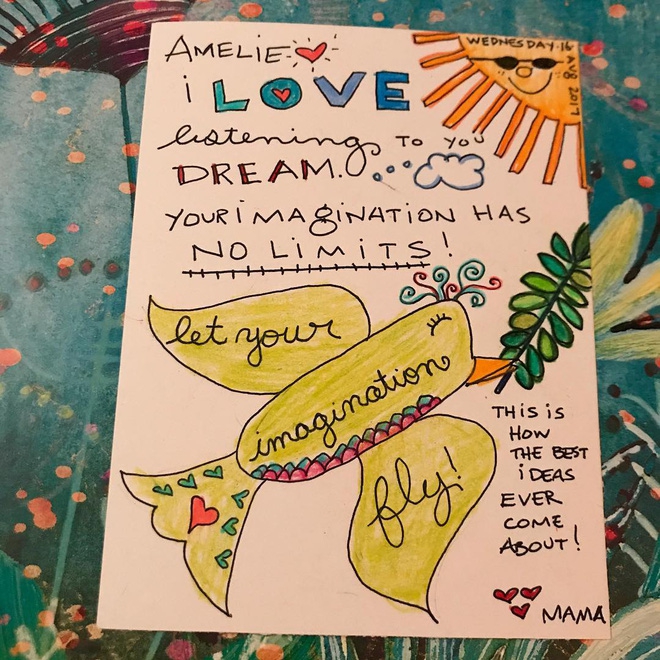 AMELIE
WEDNESDAY·16
AUG 2017
i LOVE
listening TO YOU
DREAM.
YOUR iMAGiNATiON HAS
NO LiMiTS!
let your
imagination
fly!
THiS iS
HOW
THE BEST
iDEAS
EVER
COME
ABOUT!
MAMA